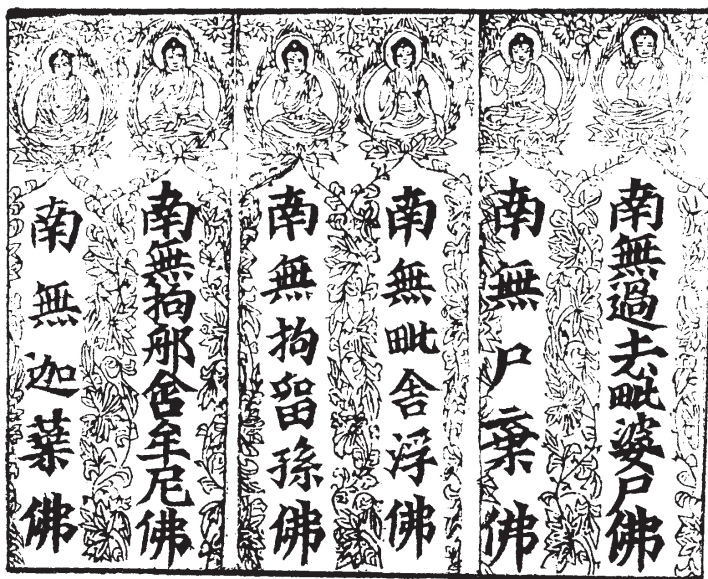 南無過去毗婆尸佛
南無尸棄佛
南無毗舍浮佛
南無拘留孫佛
南無拘那舍牟尼佛
南無迦葉佛